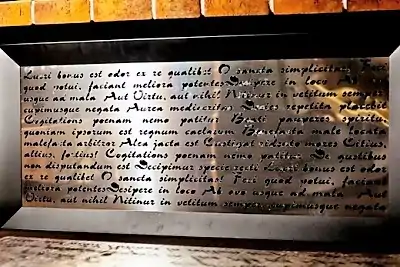 Lucri bonus est odor ex re qualibet O sancta simplicitas Feci
quod potui, faciant meliora potentes Desipere in loco Ab ovo
usque ad mala Aut Virtu, aut nihil Nitinur in vetitum semper
cupimusque negata Aurea mediocritas Decies repetita placebit
Cogitations poenam nemo patitur Beati pauperes spiritu
quoniam ipsorum est regnum caelorum Benefacta male locata
malefacta arbitror Alea jacta est Castigat ridendo mores Citius,
altius, fortius! Cogitations poenam nemo patitur De gustibus
non disputandum est Decipimur specie recti Lucri bonus est odor
ex re qualibet O sancta simplicitas! Feci quod potui, faciant
meliora potentes Desipere in loco Ab ovo usque ad mala Aut
Virtu, aut nihil Nitinur in vetitum semper cupimusque negata